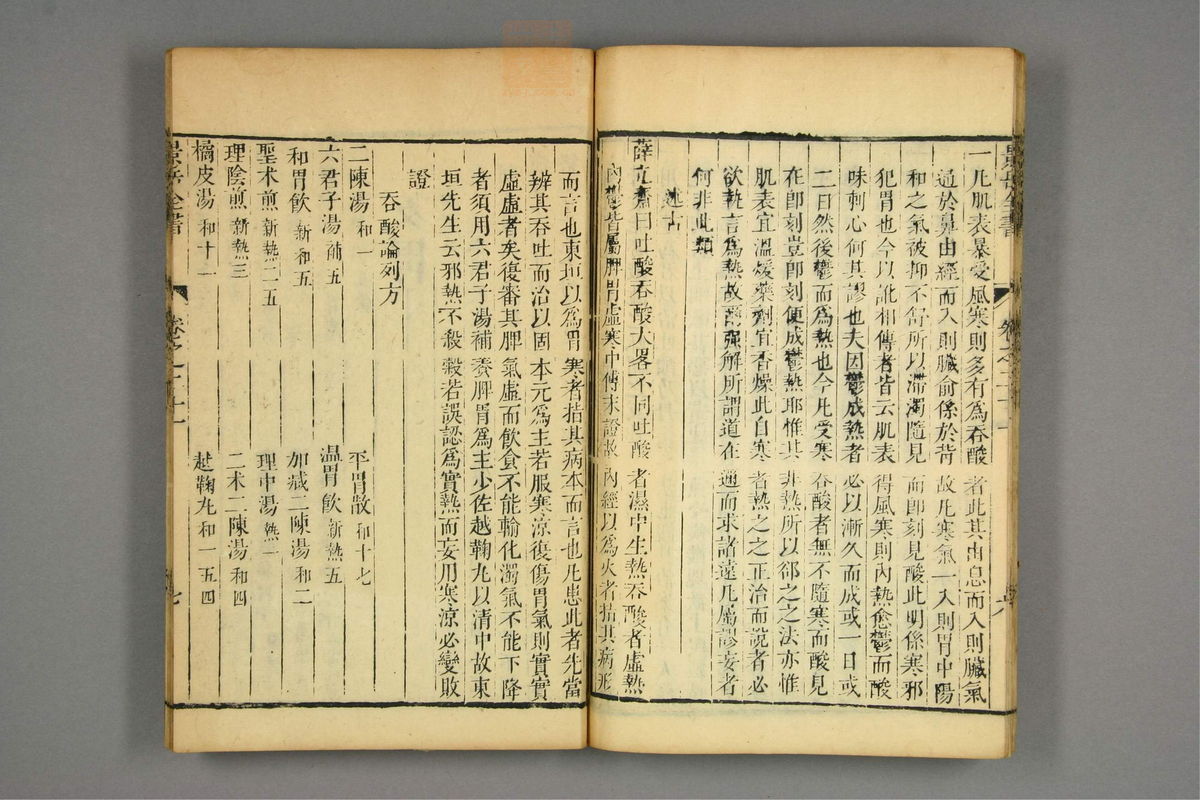 一凡肌表暴受風寒則多有為吞酸者此其由息而入則臟氣
通於鼻由經而入則臟俞係於背故凡寒氣一入則胃中陽
和之氣被抑不舒所以滯濁隨見而卽刻見酸此明係寒邪
犯胃也今以訛相傳者皆云肌表得風寒則內熱愈鬱而酸
味刺心何其謬也夫因鬱成熱者必以漸久而成或一日或
二日然後鬱而為熱也今凡受寒吞酸者無不隨寒而酸見
在卽刻豈卽刻便成鬱熱耶惟其非熱所以郤之之法亦惟
肌表宜溫煖藥劑宜香燥此自寒者熱之之正治而說者必
欲執言為熱故曰强解所謂道在邇而求諸遠凡屬謬妄者
何非此類
述古
薛立齋曰吐酸吞酸大畧不同吐酸者濕中生熱吞酸者虛熱
內鬱皆屬脾胃虛寒中傳末證故內經以為火者指其病形
而言也東垣以為胃寒者指其病本而言也凡患此者先當
辨其吞吐而治以固本元為主若服寒涼復傷胃氣則實實
虛虛者矣復審其脾氣虛而飲食不能輸化濁氣不能下降
者須用六君子湯補養脾胃為主少佐越鞠丸以清中故東
垣先生云邪熱不殺穀若誤認為實熱而妄用寒涼必變敗
證
吞酸論列方
二陳湯 和一 平胃散 和十七
六君子湯 補五 温胃飲 新熱五
和胃飲 新和五 加減二陳湯 和二
聖朮煎 新熱二五 理中湯 熱一
理陰煎 新熱三 二朮二陳湯 和四
橘皮湯 和十一 越鞠丸 和一五四
景岳全書 卷之二十一 七
景岳全書 卷之二十一